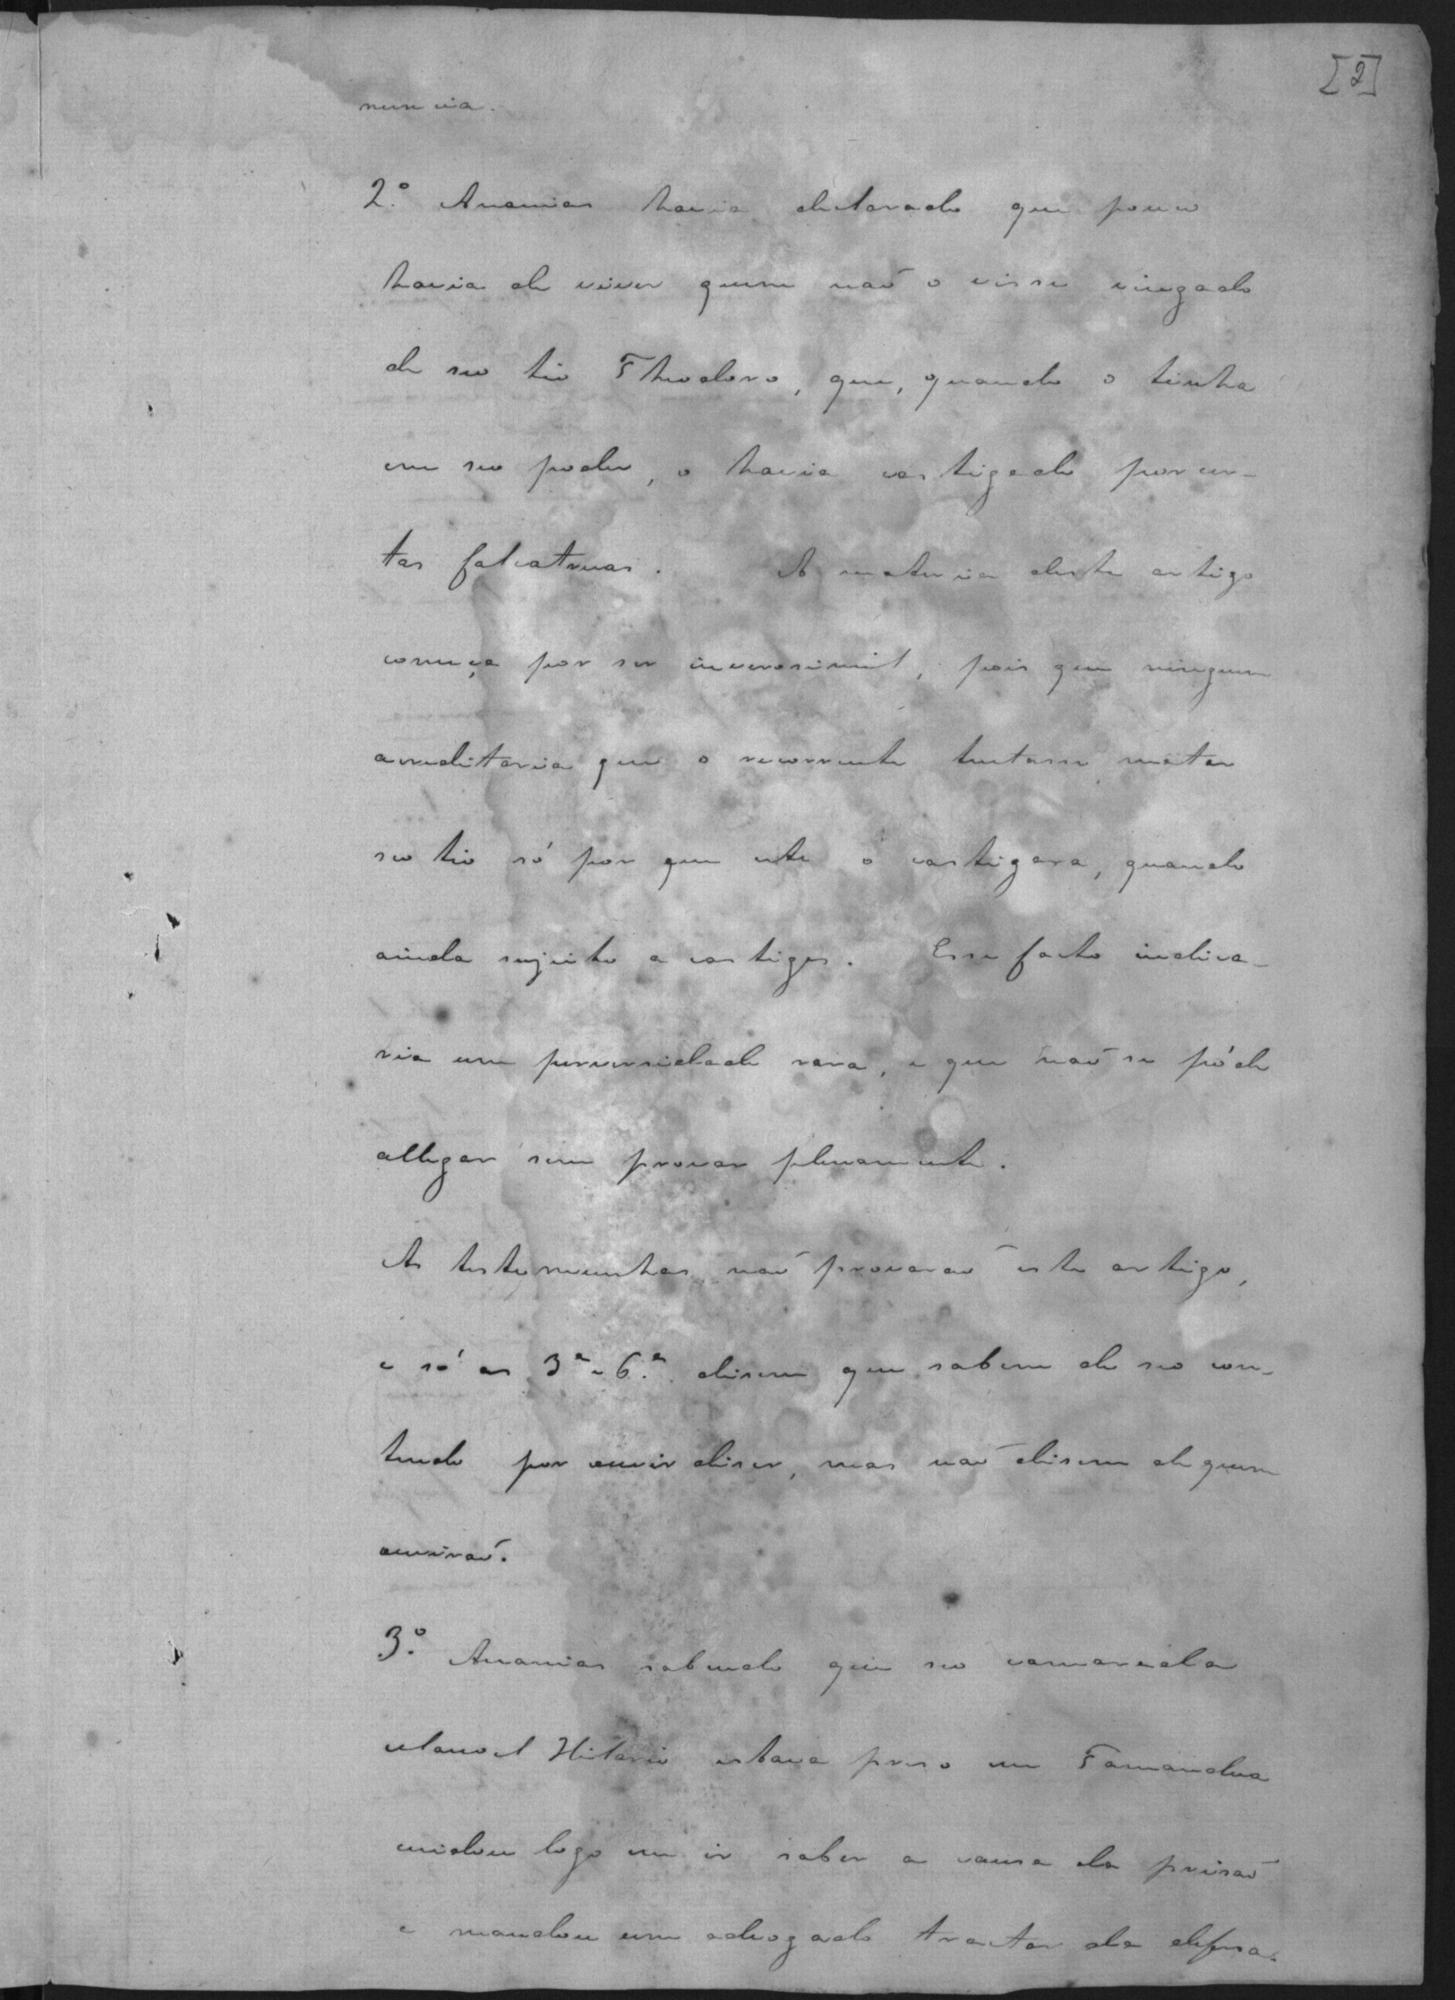 [2]
nuncia.
2.º Ananias havia declarado que pouco
havia de viver quem naõ o visse vingado
de seo tio Theodoro, que, quando o tinha
em seo poder, o havia castigado por cer-
tas falcatruas. A materia deste artigo
começa por ser inverosimil, pois que ninguem
acreditaria que o recorrente tentasse matar
seo tio só por que este o castigara, quando
ainda sujeito a castigos. Esse facto indica-
ria um perversidade rara, e que naõ se póde
allegar sem provar plenamente.
As testemunhas naõ provaraõ este artigo,
e só as 3ª e 6.ª disem que sabem de seo con-
teudo por ouvir diser, mas naõ disem de quem
ouviraõ.
3.º Ananias sabendo que seo camarada
Manoel Hilario estava preso em Tamandua
cuidou logo em ir saber a causa da prisaõ
e mandou um advogado tractar da defesa.